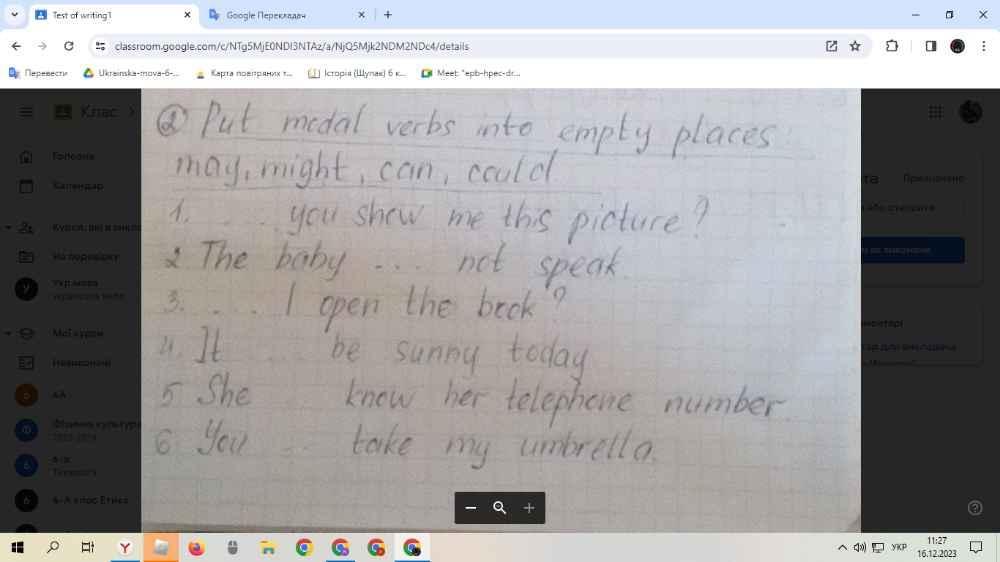 Test of writing1
Google Перекладач
classroom.google.com/c/NTg5MjE0NDI3NTAz/a/NjQ5Mjk2NDM2NDc4/details
Перевести
Ukrainska-mova-6-...
Карта повітряних т...
Історія (Щупак) 6 к...
Meet: "epb-hpec-dr...
Клас
Головна
Календар
Курси, які я викла
На перевірку
Укр.мова
українська мова
Мої курси
Невиконані
6А
Фізична культура
2023-2024
6-а
6-А клас Етика
Призначено
або створити
ентарі
тар для викладача
② Put modal verbs into empty places:
may, might, can, could.
1. .... you show me this picture?
2 The baby ... not speak.
3. .... I open the book?
4 It ... be sunny today
5 She know her telephone number.
6 You ... take my umbrella.
11:27
УКР
16.12.2023